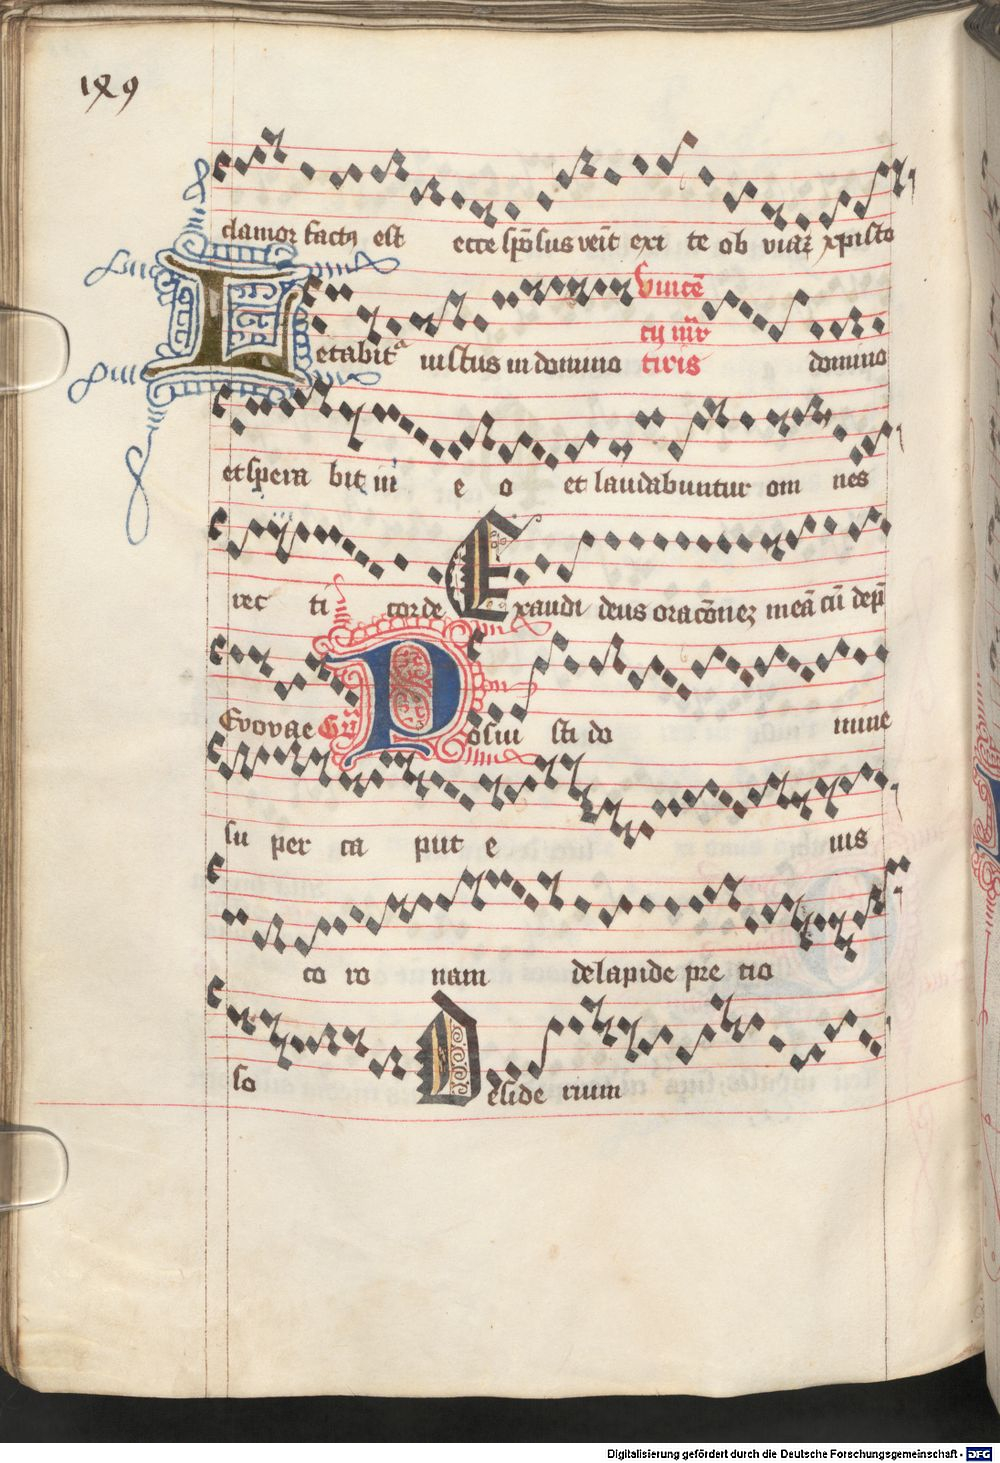 189
clamor factꝫ est ecce spōsus veīt exi te ob viaꝫ xpisto
Letabitᵃ iustus in domino Vincē cij mr̄ tiris domino
et spera bit in e o et laudabuntur om nes
rec ti corde Exaudi deus oracōneꝫ meā cū dep̄
Evovae Gr̄ Posui sti do mine
su per ca put e ius
co ro nam de lapide pre tio
so Deside rium
Digitalisierung gefördert durch die Deutsche Forschungsgemeinschaft - DFG